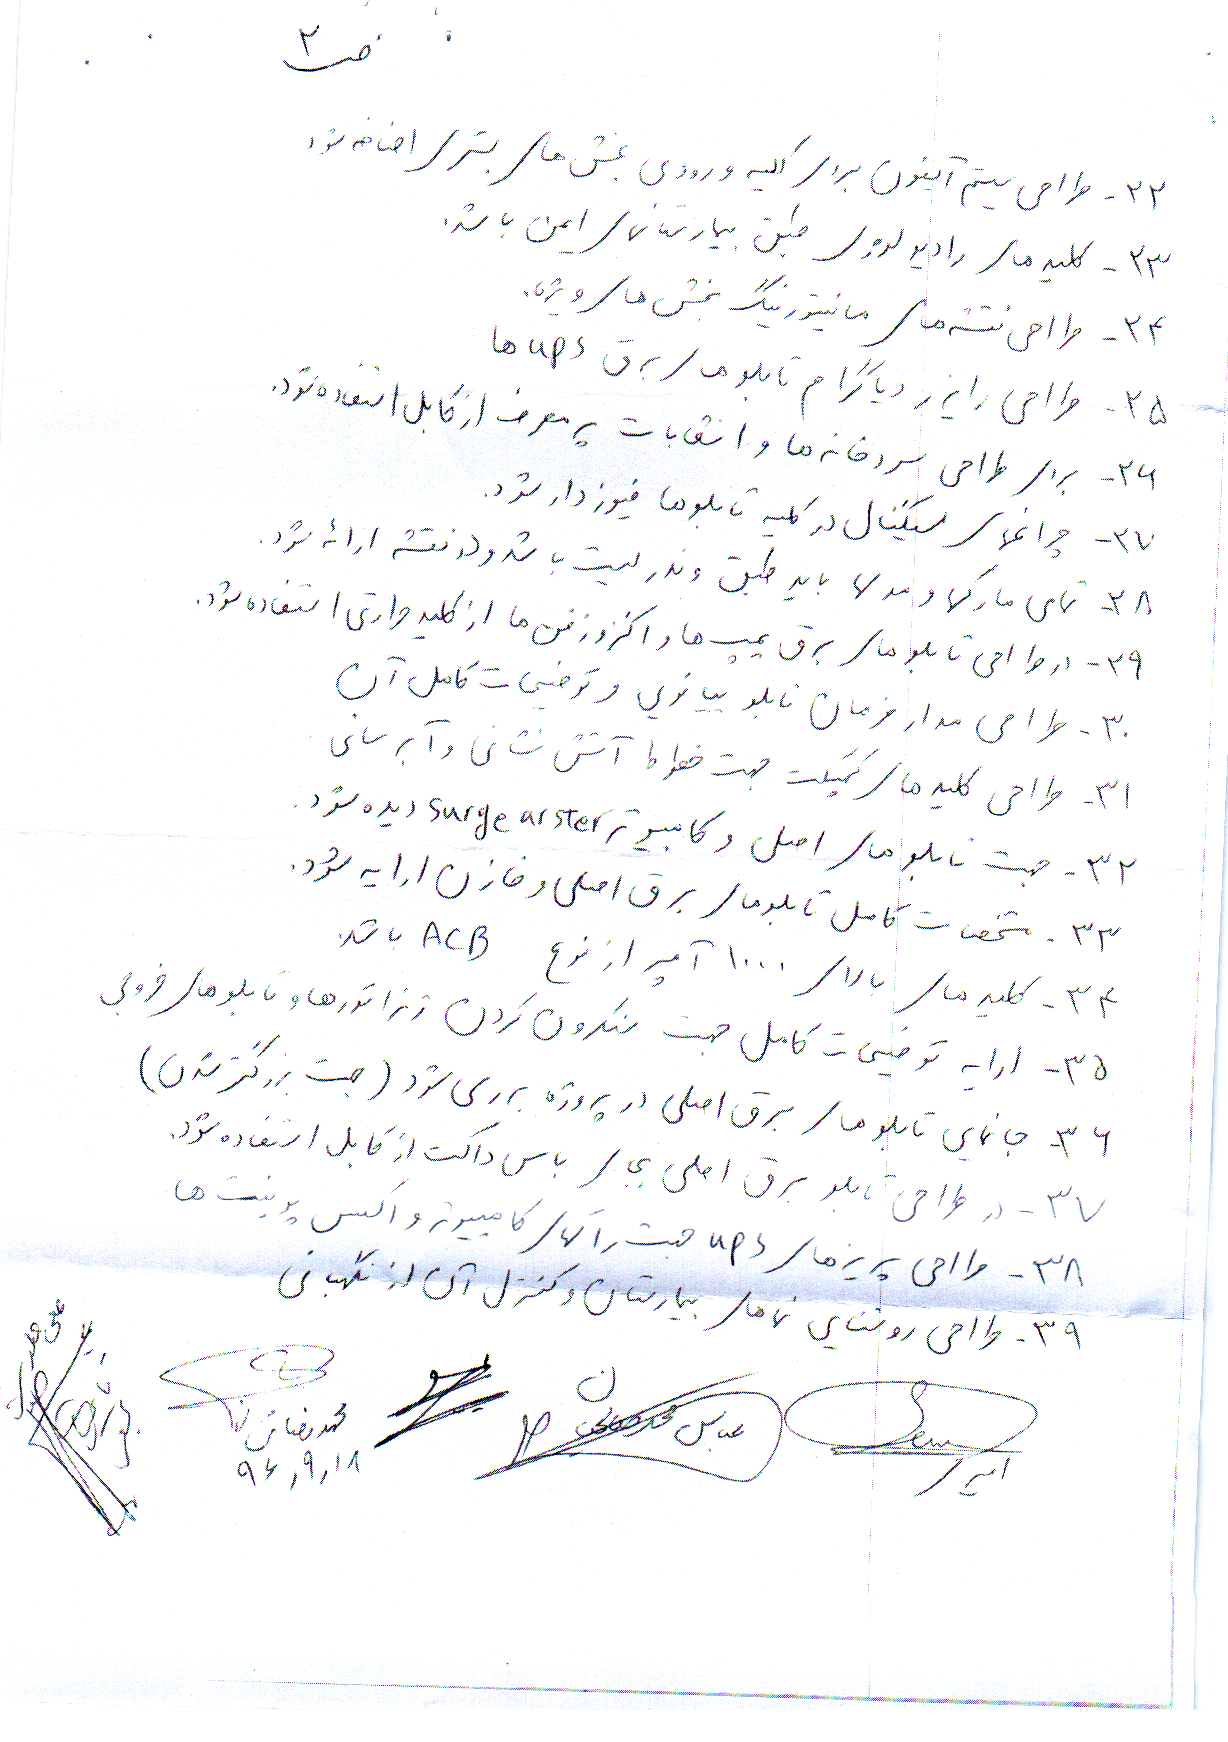 ص ۲
۲۲- طراحی سیستم آیفون برای کلیه ورودی بخش های بستری اضافه شود
۲۳- کلید های رادیولوژی طبق بیمارستانهای ایمن باشد.
۲۴- طراحی نقشه های مانیتورینگ بخش های ویژه.
۲۵- طراحی رایزر دیاگرام تابلو های برق ups ها
۲۶- برای طراحی سردخانه ها و انشعابات پر مصرف از کابل استفاده شود.
۲۷- چراغهای سیگنال در کلیه تابلوها فیوز دار شود.
۲۸- تمامی مارکها و مدلها باید طبق وندر لیست باشد و در نقشه ارائه شود.
۲۹- در طراحی تابلو های برق پمپ ها و اگزوز فن ها از کلید حرارتی استفاده شود.
۳۰- طراحی مدار فرمان تابلو پیانویی و توضیحات کامل آن
۳۱- طراحی کلید های جهت خطوط آتش نشانی و آبرسانی
۳۲- جهت تابلو های اصلی و کامپیوتر surge arster دیده شود.
۳۳- مشخصات کامل تابلوهای برق اصلی و خازن ارایه شود.
۳۴- کلید های بالای ۱۰۰۰ آمپر از نوع ACB باشد.
۳۵- ارایه توضیحات کامل جهت سنکرون کردن ژنراتورها و تابلو های خروجی
۳۶- جانمایی تابلو های برق اصلی در پروژه بررسی شود (جهت بزرگتر شدن)
۳۷- در طراحی تابلو برق اصلی بجای باس داکت از کابل استفاده شود.
۳۸- طراحی پریزهای ups جهت رکهای کامپیوتر و اکسس پوینت ها
۳۹- طراحی روشنایی نماهای بیمارستان و کنترل آن از نگهبانی
امیری
عباس
محمدرضا
۹۶,۹,۱۸